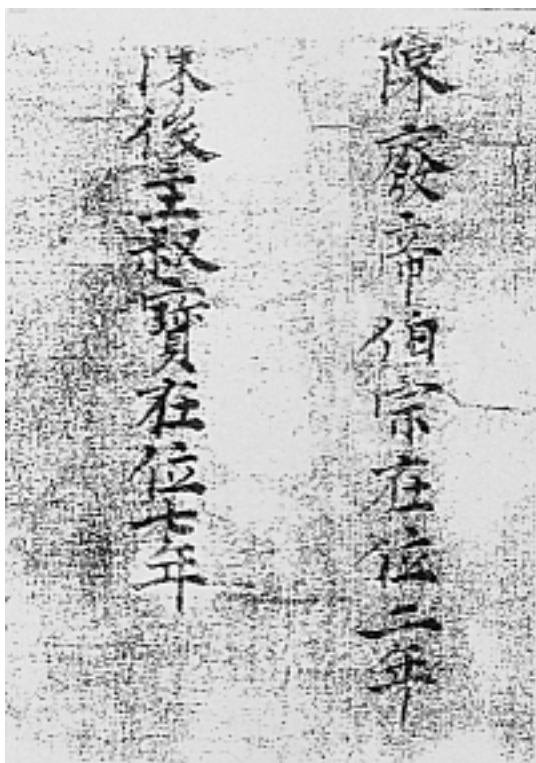 陳廢帝伯宗在位二年
陳後主叔寶在位七年